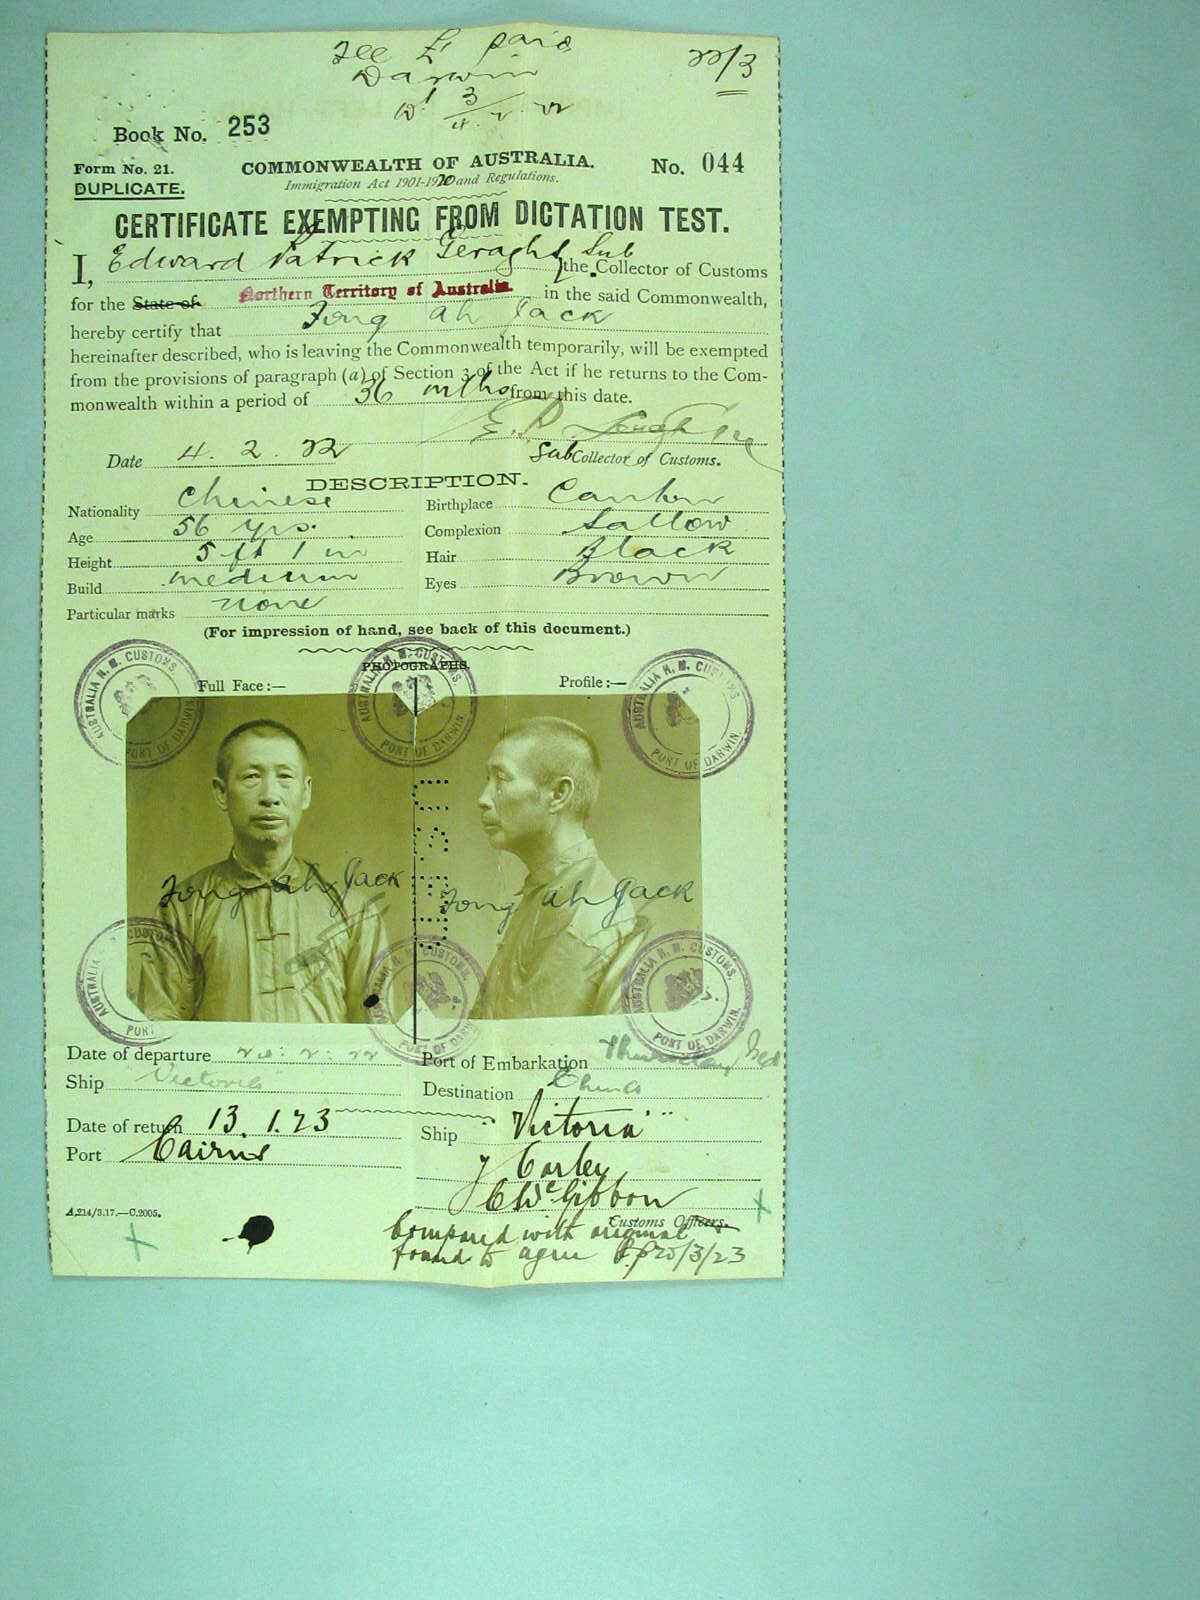 Fee £1 paid
Darwin
22/3
Book No. 253
Form No. 21.
COMMONWEALTH OF AUSTRALIA.
No. 044
DUPLICATE.
Immigration Act 1901-1920 and Regulations.
CERTIFICATE EXEMPTING FROM DICTATION TEST.
I, Edward Patrick Geraghty the Sub Collector of Customs
for the State of Northern Territory of Australia in the said Commonwealth,
hereby certify that Fong ah Jack
hereinafter described, who is leaving the Commonwealth temporarily, will be exempted
from the provisions of paragraph (a) of Section 3 of the Act if he returns to the Com-
monwealth within a period of 36 mths from this date.
Date 4. 2. 22
Sub Collector of Customs.
DESCRIPTION.
Nationality Chinese
Birthplace Canton
Age 56 yrs.
Complexion Sallow
Height 5 ft 1 in
Hair Black
Build medium
Eyes Brown
Particular marks none
(For impression of hand, see back of this document.)
PHOTOGRAPHS.
Full Face :—
Profile :—
AUSTRALIA H. M. CUSTOMS. PORT OF DARWIN.
AUSTRALIA H. M. CUSTOMS. PORT OF DARWIN.
AUSTRALIA H. M. CUSTOMS. PORT OF DARWIN.
Fong ah Jack
Fong ah Jack
AUSTRALIA CUSTOMS PORT
AUSTRALIA H. M. CUSTOMS. PORT OF DARWIN.
AUSTRALIA H. M. CUSTOMS. PORT OF DARWIN.
Date of departure
Port of Embarkation Thursday Isld
Ship Victoria
Destination China
Date of return 13. 1. 23
Ship "Victoria"
Port Cairns
J Corley
C McGibbon
Customs Officers.
A.214/3.17.—C.2005.
Compared with original
found to agree 20/3/23